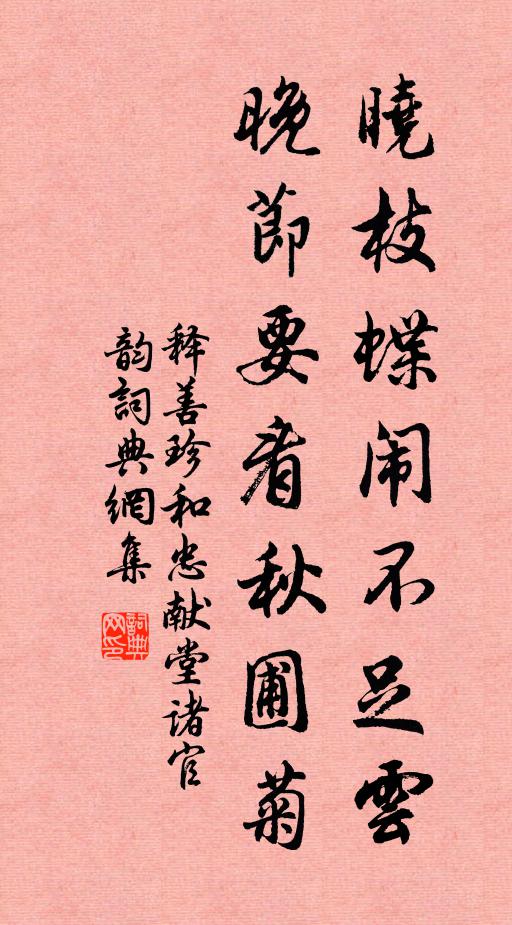 曉枝蝶闹不足雲
晚節要看秋圃菊
释善珍和忠献堂诸官
韵詞典網集
詞典网印